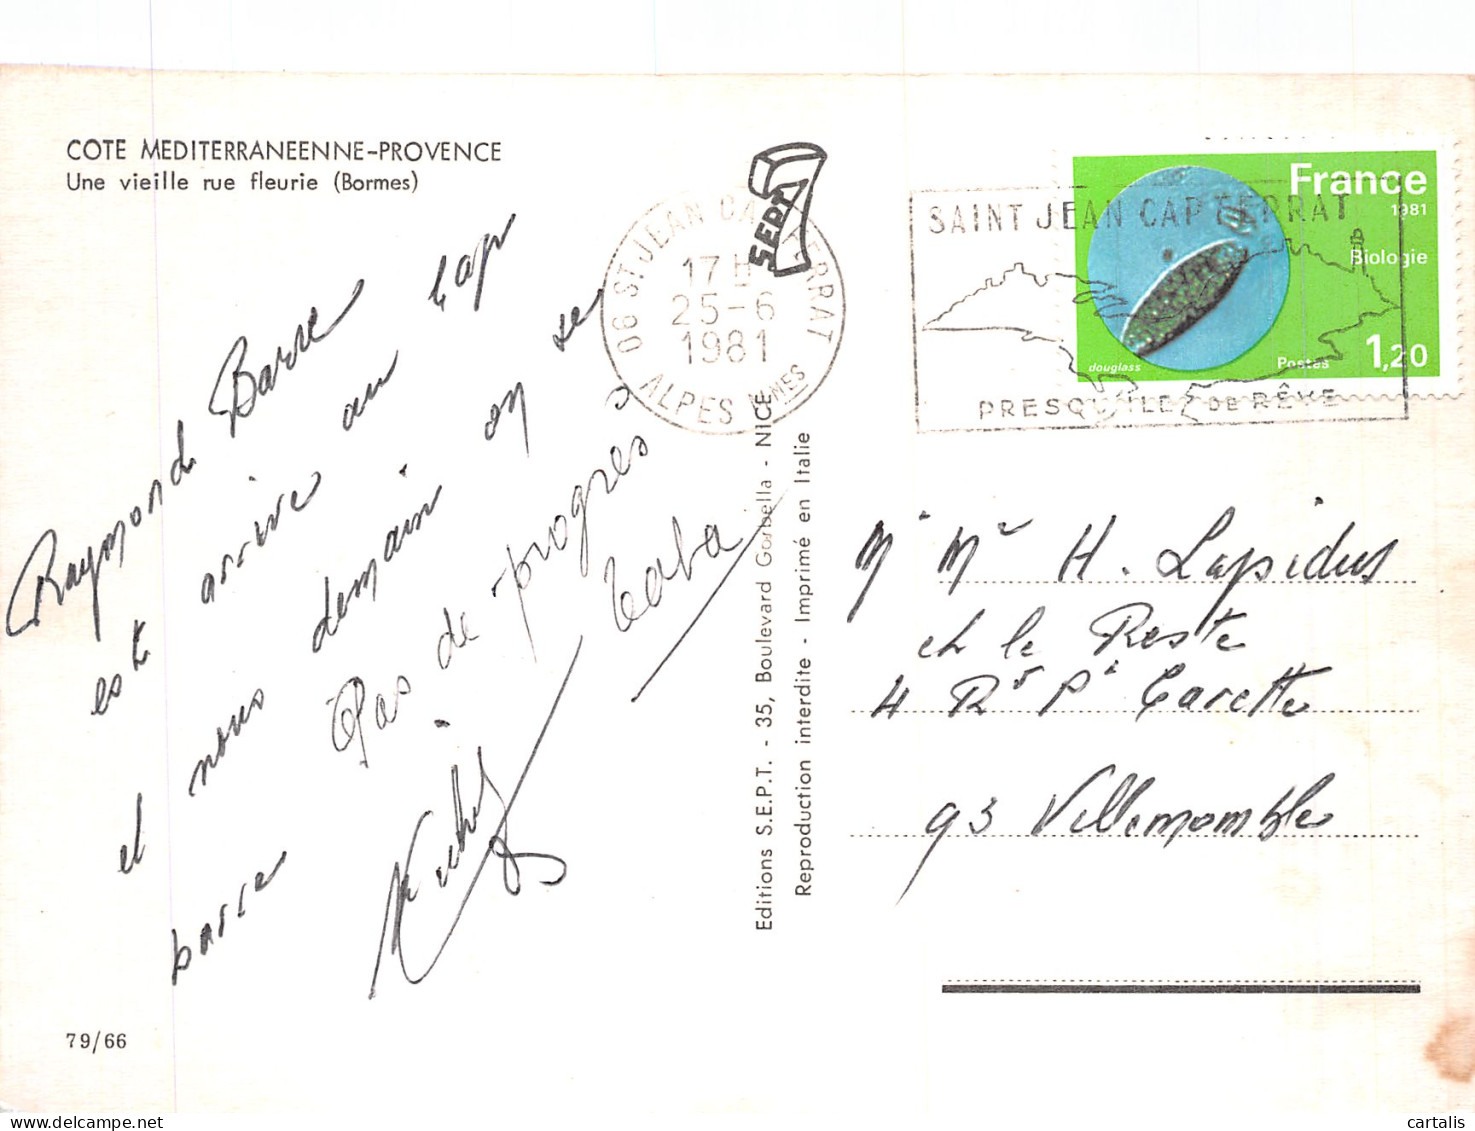 COTE MEDITERRANEENNE-PROVENCE
Une vieille rue fleurie (Bormes)
Raymond Barre
est arrivé au Cap
et nous demain on se
barre Pas de progres
79/66
SEPT
06 ST JEAN CAP FERRAT
17 H
25-6
1981
ALPES MMES
Editions S.E.P.T. - 35, Boulevard Gorbella - NICE
Reproduction interdite - Imprimé en Italie
SAINT JEAN CAP FERRAT
PRESQU'ILE DE RÊVE
France
1981
Biologie
douglass
Postes
1,20
Mr Me H. Lapidus
ch le Reste
4 R Pt Carette
93 Villemomble
cartalis